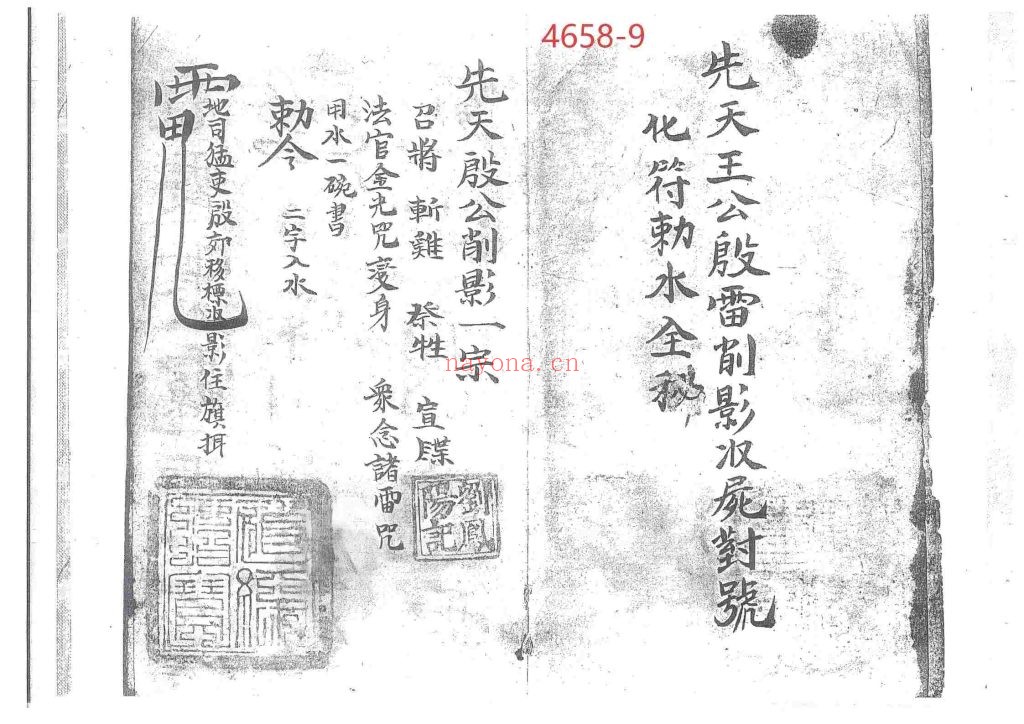 4658-9
先天王公殷雷削影収屍對號
化符勅水全秘
先天殷公削影一宗
召將 斬雞 祭牲 宣牒
法官金光咒變身 衆念諸雷咒
用水一碗書
勅令 二字入水
地司猛吏殷郊移標収影住旗
劉鳳
陽記
nayona.cn